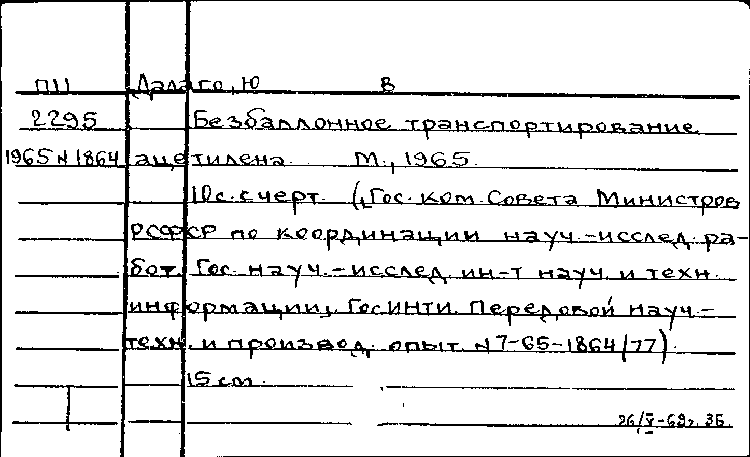 ПЦ Далаго, Ю В
2295 Безбаллонное транспортирование
1965 N 1864 ацетилена М., 1965.
10с. с черт. (Гос. ком. Совета Министров
РСФСР по координации науч.-исслед. ра-
бот. Гос. науч.-исслед. ин-т науч. и техн.
информации, ГосИНТИ. Передовой науч.-
техн. и производ. опыт N 7-65-1864/77).
15 см.
26/V-69г. ЗБ